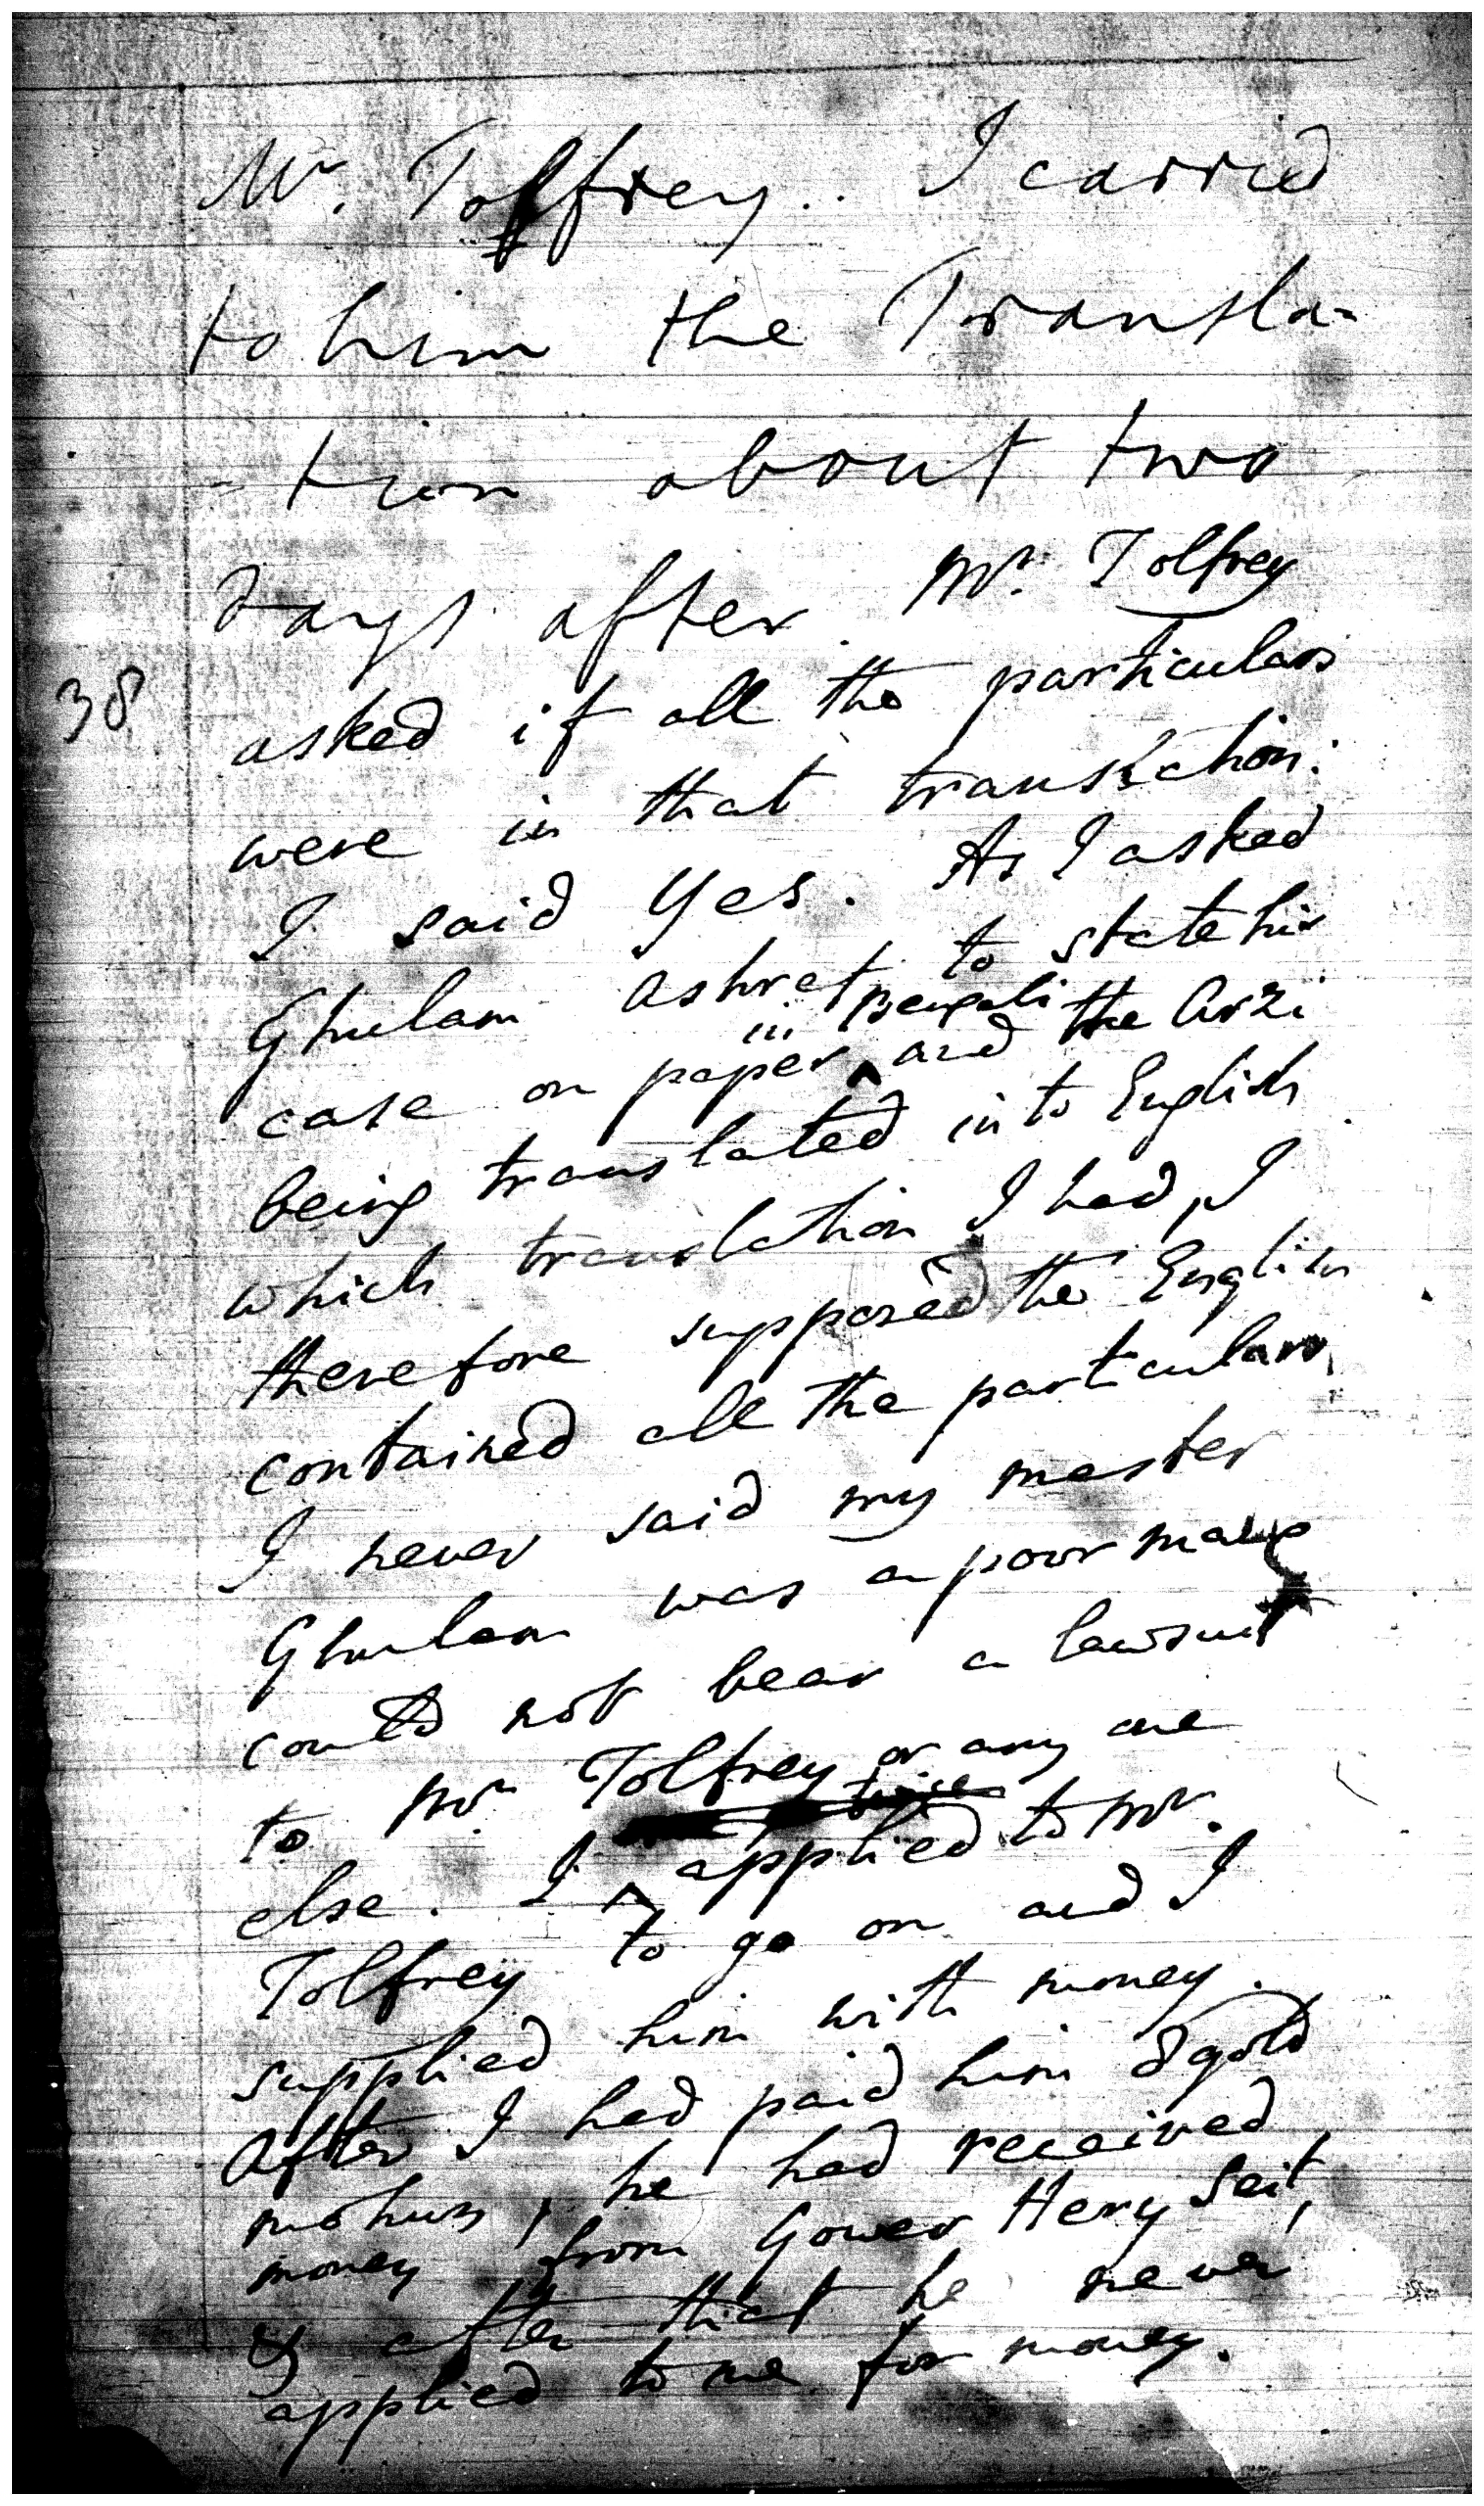 Mr. Tolfrey.. I carried
to him the Transla-
-tion about two
days after. Mr. Tolfrey
38
asked if all the particulars
were in that translation:
I said yes. As I asked
Ghulam Ashref to state his
case on paper in Bengali and the Arzi
being translated into English
which translation I had, I
therefore supposed the English
contained all the particulars,
I never said my master
Ghulam was a poor man &
could not bear a lawsuit
to Mr. Tolfrey or any one
else. I applied to Mr.
Tolfrey to go on and I
supplied him with money.
After I had paid him 8 gold
mohurs, he had received
money from Gower Hery Seit,
& after that he never
applied to me for money.